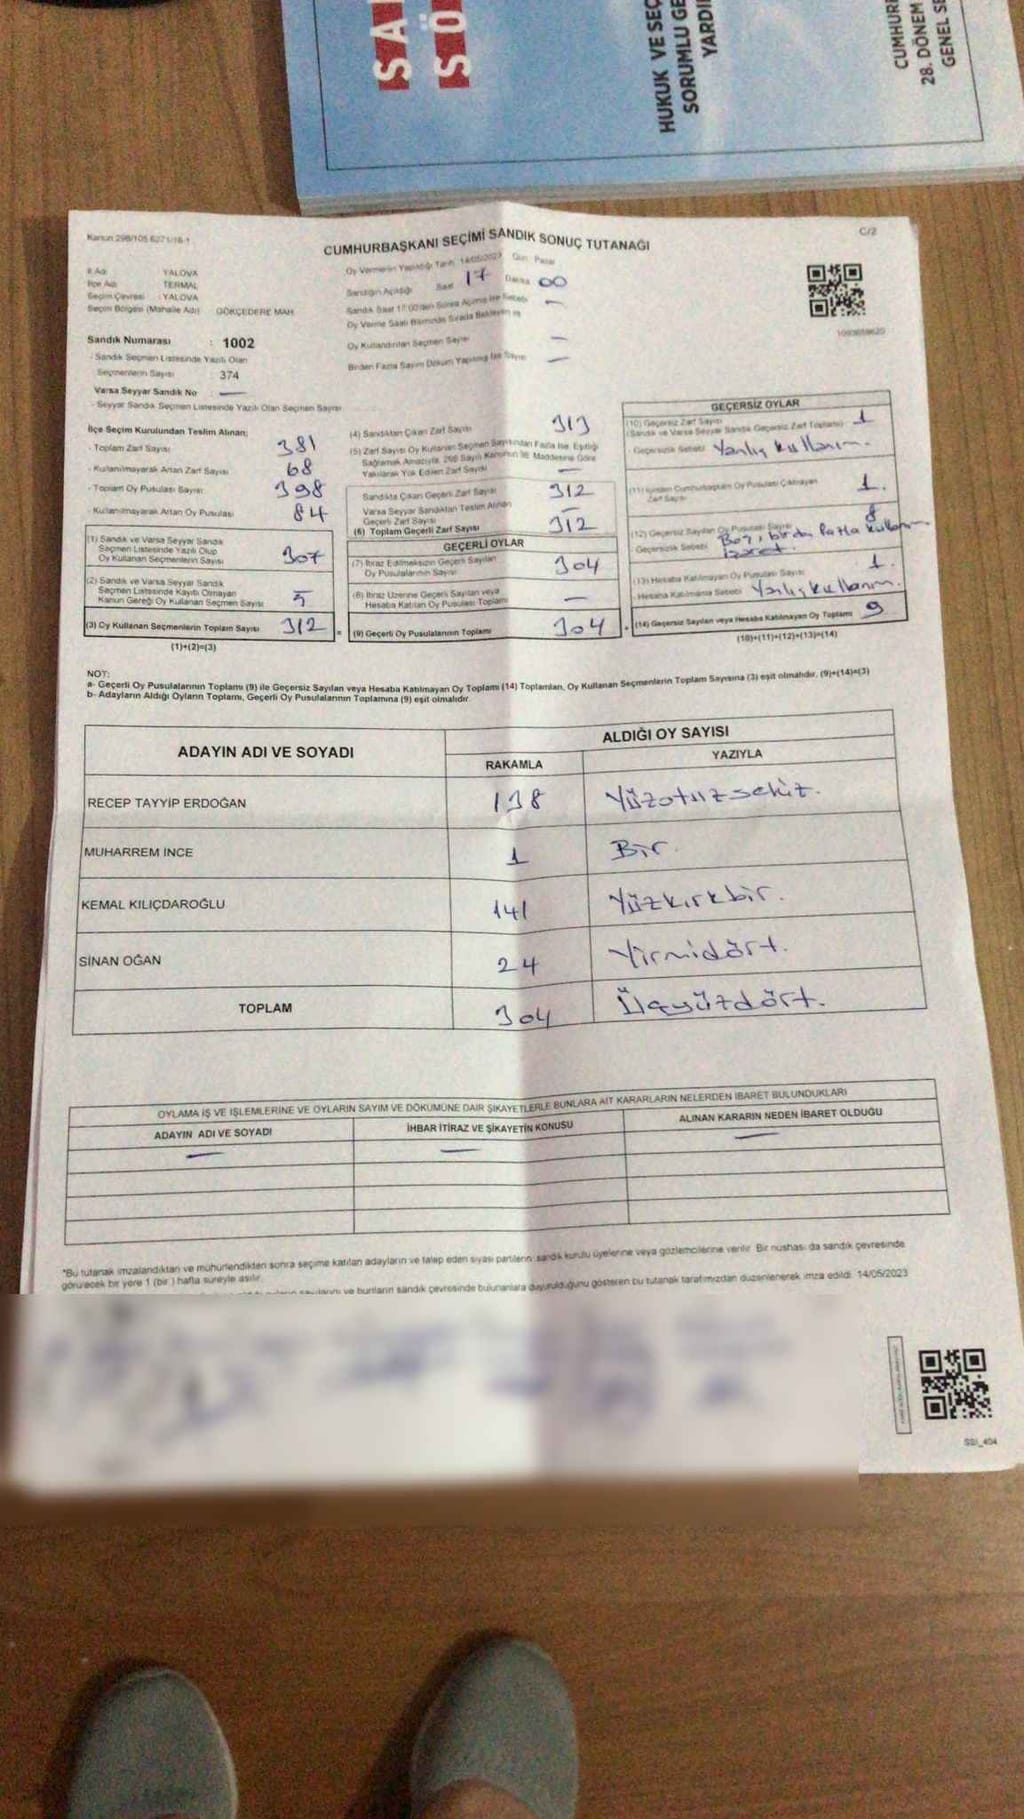 HUKUK VE SEÇ
SORUMLU GE
YARDI
CUMHUR
28. DÖNEM
GENEL SE
CUMHURBAŞKANI SEÇİMİ SANDIK SONUÇ TUTANAĞI
C/2
İl Adı YALOVA
İlçe Adı TERMAL
Seçim Çevresi : YALOVA
Seçim Bölgesi (Mahalle Adı) GÖKÇEDERE MAH.
Oy Vermenin Yapıldığı Tarih: 14/05/2023 Gün Pazar
Sandığın Açıldığı Saat 17 Dakika 00
Sandık Saat 17:00'den Sonra Açılmış İse Sebebi —
Oy Verme Saati Bitiminde Sırada Bekleyen ve
Oy Kullandırılan Seçmen Sayısı —
Birden Fazla Sayım Döküm Yapılmış İse Sayısı —
Sandık Numarası : 1002
- Sandık Seçmen Listesinde Yazılı Olan
Seçmenlerin Sayısı 374
Varsa Seyyar Sandık No : —
- Seyyar Sandık Seçmen Listesinde Yazılı Olan Seçmen Sayısı
İlçe Seçim Kurulundan Teslim Alınan;
- Toplam Zarf Sayısı 381
- Kullanılmayarak Artan Zarf Sayısı 68
- Toplam Oy Pusulası Sayısı 398
- Kullanılmayarak Artan Oy Pusulası 84
(1) Sandık ve Varsa Seyyar Sandık
Seçmen Listesinde Yazılı Olup
Oy Kullanan Seçmenlerin Sayısı 307
(2) Sandık ve Varsa Seyyar Sandık
Seçmen Listesinde Kayıtlı Olmayan
Kanun Gereği Oy Kullanan Seçmen Sayısı 5
(3) Oy Kullanan Seçmenlerin Toplam Sayısı 312
(1)+(2)=(3)
(4) Sandıktan Çıkan Zarf Sayısı 313
(5) Zarf Sayısı Oy Kullanan Seçmen Sayısından Fazla İse, Eşitliği
Sağlamak Amacıyla, 298 Sayılı Kanunun 98. Maddesine Göre
Yakılarak Yok Edilen Zarf Sayısı —
Sandıkta Çıkan Geçerli Zarf Sayısı 312
Varsa Seyyar Sandıktan Teslim Alınan
Geçerli Zarf Sayısı —
(6) Toplam Geçerli Zarf Sayısı 312
GEÇERLİ OYLAR
(7) İtiraz Edilmeksizin Geçerli Sayılan
Oy Pusulalarının Sayısı 304
(8) İtiraz Üzerine Geçerli Sayılan veya
Hesaba Katılan Oy Pusulası Toplamı —
= (9) Geçerli Oy Pusulalarının Toplamı 304
GEÇERSİZ OYLAR
(10) Geçersiz Zarf Sayısı 1
(Sandık ve Varsa Seyyar Sandık Geçersiz Zarf Toplamı)
Geçersizlik Sebebi Yanlış kullanım.
Zarf Sayısı 1.
(12) Geçersiz Sayılan Oy Pusulası Sayısı 8
Geçersizlik Sebebi Boş, birden fazla kullanım
(13) Hesaba Katılmayan Oy Pusulası Sayısı 1.
Hesaba Katılmama Sebebi Yanlış kullanım.
+ (14) Geçersiz Sayılan veya Hesaba Katılmayan Oy Toplamı 9
(10)+(11)+(12)+(13)=(14)
NOT:
a- Geçerli Oy Pusulalarının Toplamı (9) ile Geçersiz Sayılan veya Hesaba Katılmayan Oy Toplamı (14) Toplamları, Oy Kullanan Seçmenlerin Toplam Sayısına (3) eşit olmalıdır. (9)+(14)=(3)
b- Adayların Aldığı Oyların Toplamı, Geçerli Oy Pusulalarının Toplamına (9) eşit olmalıdır.
ADAYIN ADI VE SOYADI
ALDIĞI OY SAYISI
RAKAMLA YAZIYLA
RECEP TAYYİP ERDOĞAN 138 Yüzotuzsekiz.
MUHARREM İNCE 1 Bir
KEMAL KILIÇDAROĞLU 141 Yüzkırkbir.
SİNAN OĞAN 24 Yirmidört.
TOPLAM 304 Üçyüzdört.
OYLAMA İŞ VE İŞLEMLERİNE VE OYLARIN SAYIM VE DÖKÜMÜNE DAİR ŞİKAYETLERLE BUNLARA AİT KARARLARIN NELERDEN İBARET BULUNDUKLARI
ADAYIN ADI VE SOYADI İHBAR İTİRAZ VE ŞİKAYETİN KONUSU ALINAN KARARIN NEDEN İBARET OLDUĞU
— — —
*Bu tutanak imzalandıktan ve mühürlendikten sonra seçime katılan adayların ve talep eden siyasi partilerin sandık kurulu üyelerine veya gözlemcilerine verilir. Bir nüshası da sandık çevresinde
görülecek bir yere 1 (bir) hafta süreyle asılır.
ve bunların sandık çevresinde bulunanlara duyurulduğunu gösteren bu tutanak tarafımızdan düzenlenerek imza edildi. 14/05/2023